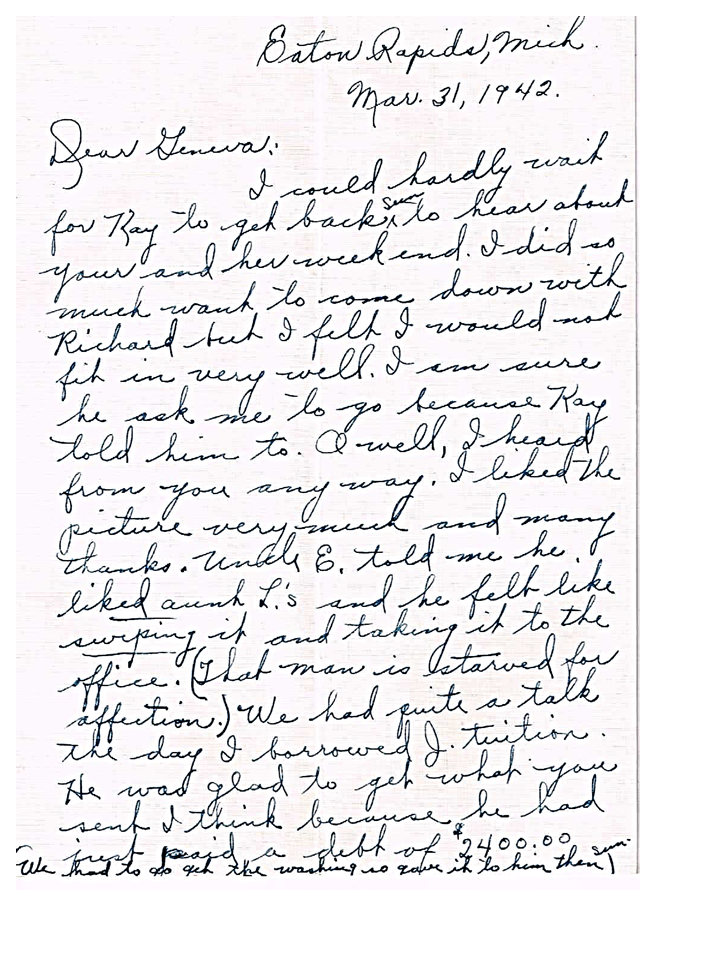 Eaton Rapids, Mich.
Mar. 31, 1942.
Dear Geneva:
I could hardly wait
for Kay to get back sun. to hear about
your and her week end. I did so
much want to come down with
Richard but I felt I would not
fit in very well. I am sure
he ask me to go because Kay
told him to. O well, I heard
from you any way. I liked the
picture very much and many
thanks. Uncle E. told me he
liked aunt L.'s and he felt like
swiping it and taking it to the
office. (That man is starved for
affection.) We had quite a talk
the day I borrowed J. tuition.
He was glad to get what you
sent I think because he had
just paid a debt of $2400.00
We had to go get the washing so gave it to him then sun.)